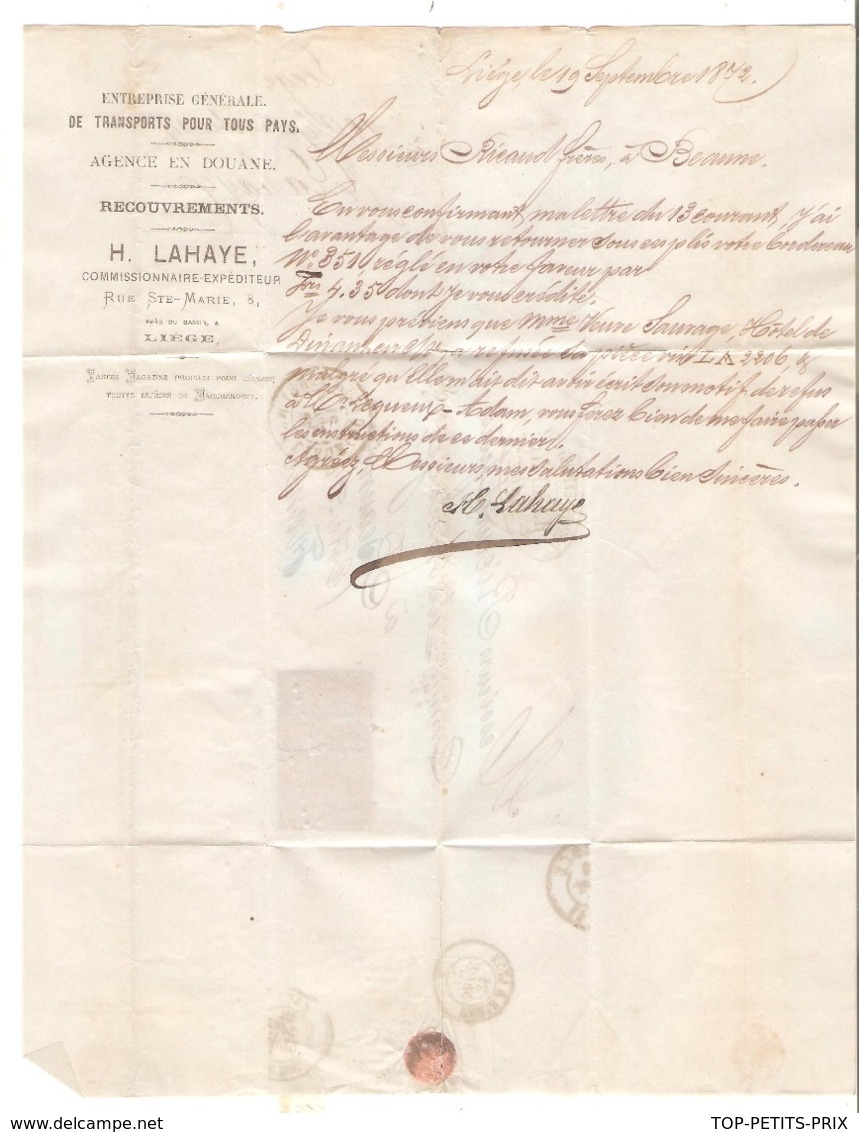 Liége, le 19 Septembre 1872.
ENTREPRISE GÉNÉRALE.
DE TRANSPORTS POUR TOUS PAYS.
AGENCE EN DOUANE.
RECOUVREMENTS.
H. LAHAYE,
COMMISSIONNAIRE-EXPÉDITEUR
RUE STE-MARIE, 8,
PRÈS DU BASSIN, A
LIÉGE.
VASTES MAGASINS PROPRES POUR DÉPOSER
TOUTES ESPÈCES DE MARCHANDISES.
Messieurs Ricaud frères, à Beaune.
En vous confirmant, ma lettre du 13 courant, j'ai
l'avantage de vous retourner sous ces plis votre bordereau
No. 351, réglé en votre faveur par
Frs 4.35 dont je vous crédite.
Je vous préviens que Mme Veuve Sauvage, Hôtel de
Dinant en a refusée la pièce vin L A 2206, &
malgré qu'Elle m'ait dit avoir écrit son motif de refus
à Mr Lequeux-Adam, vous ferez bien de me faire passer
les instructions de ce dernier.
Agréez, Messieurs, mes salutations bien sincères.
H. Lahaye
TOP-PETITS-PRIX